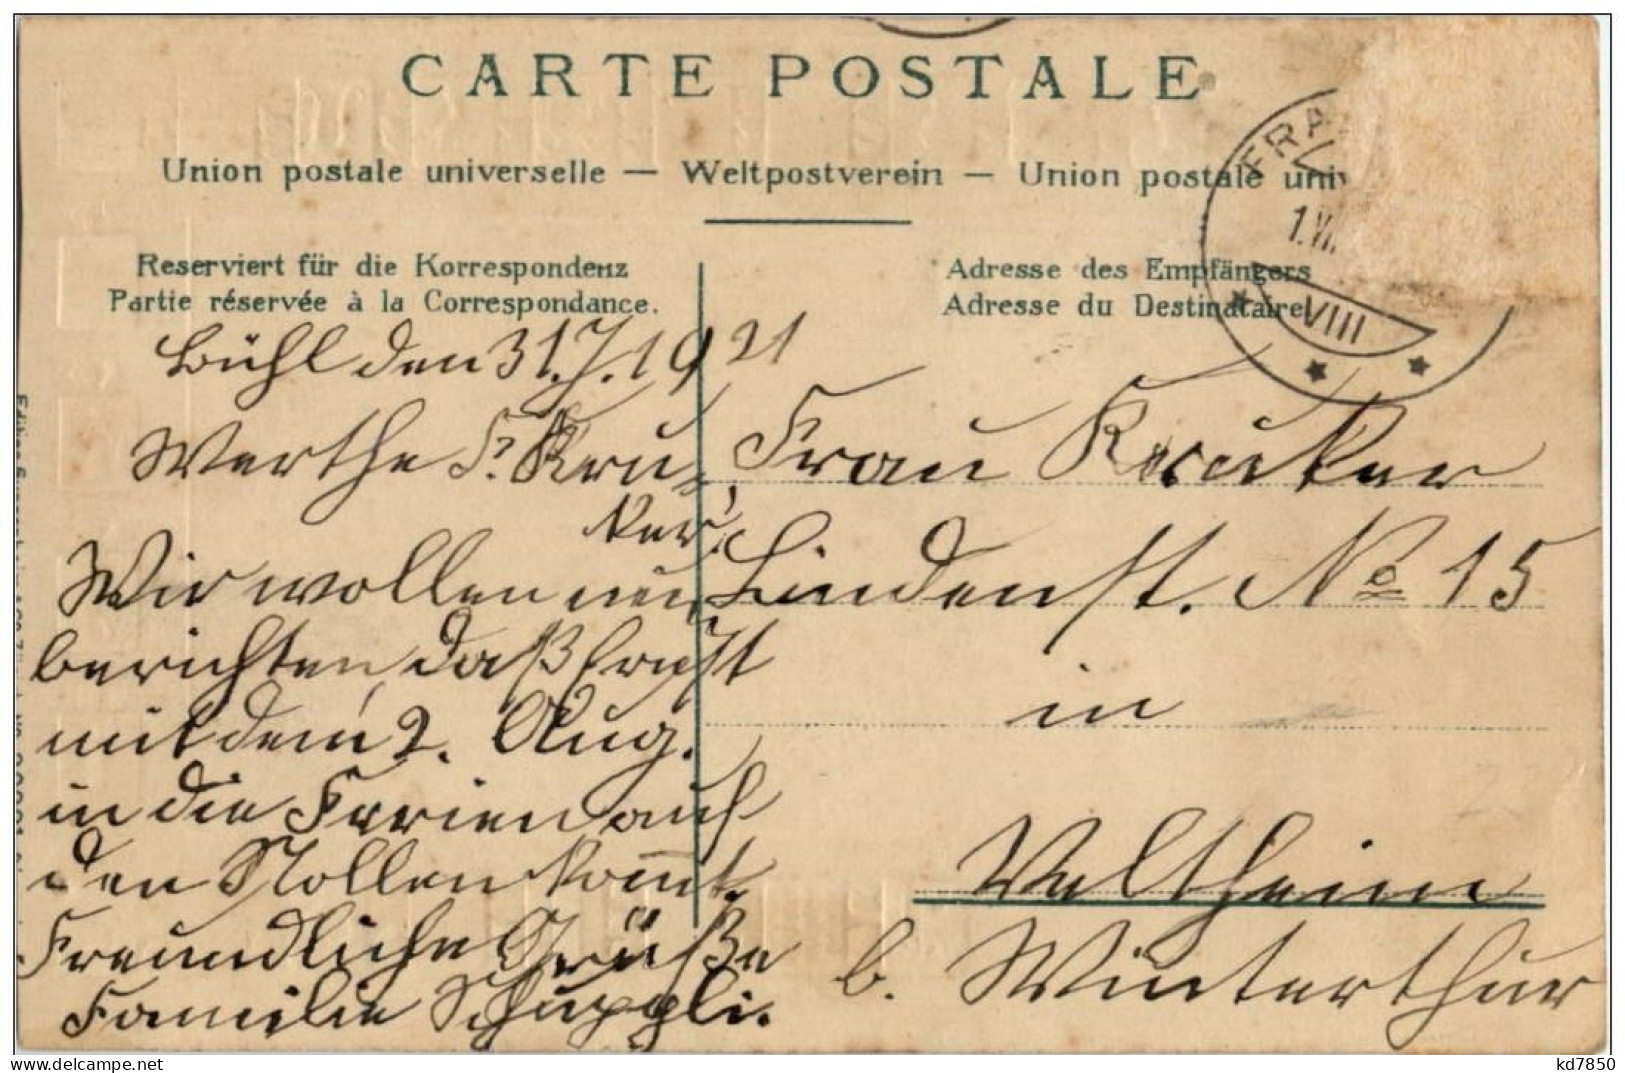 CARTE POSTALE
Union postale universelle — Weltpostverein — Union postale univ
Reserviert für die Korrespondenz
Partie réservée à la Correspondance.
Adresse des Empfängers
Adresse du Destinataire
FRA
1.VII
VIII
Bühl den 31.7.1921
Werthe Fr. Kru-
ker!
Wir wollen nun
berichten, daß Ernst
mit dem 2. Aug.
in die Ferien auf
den Nollen kom̅t.
Freundliche Grüße
Familie Schuppli.
Frau Kruker
Lindenst. No 15
in
Veltheim
b. Winterthur
kd7850
delcampe.net